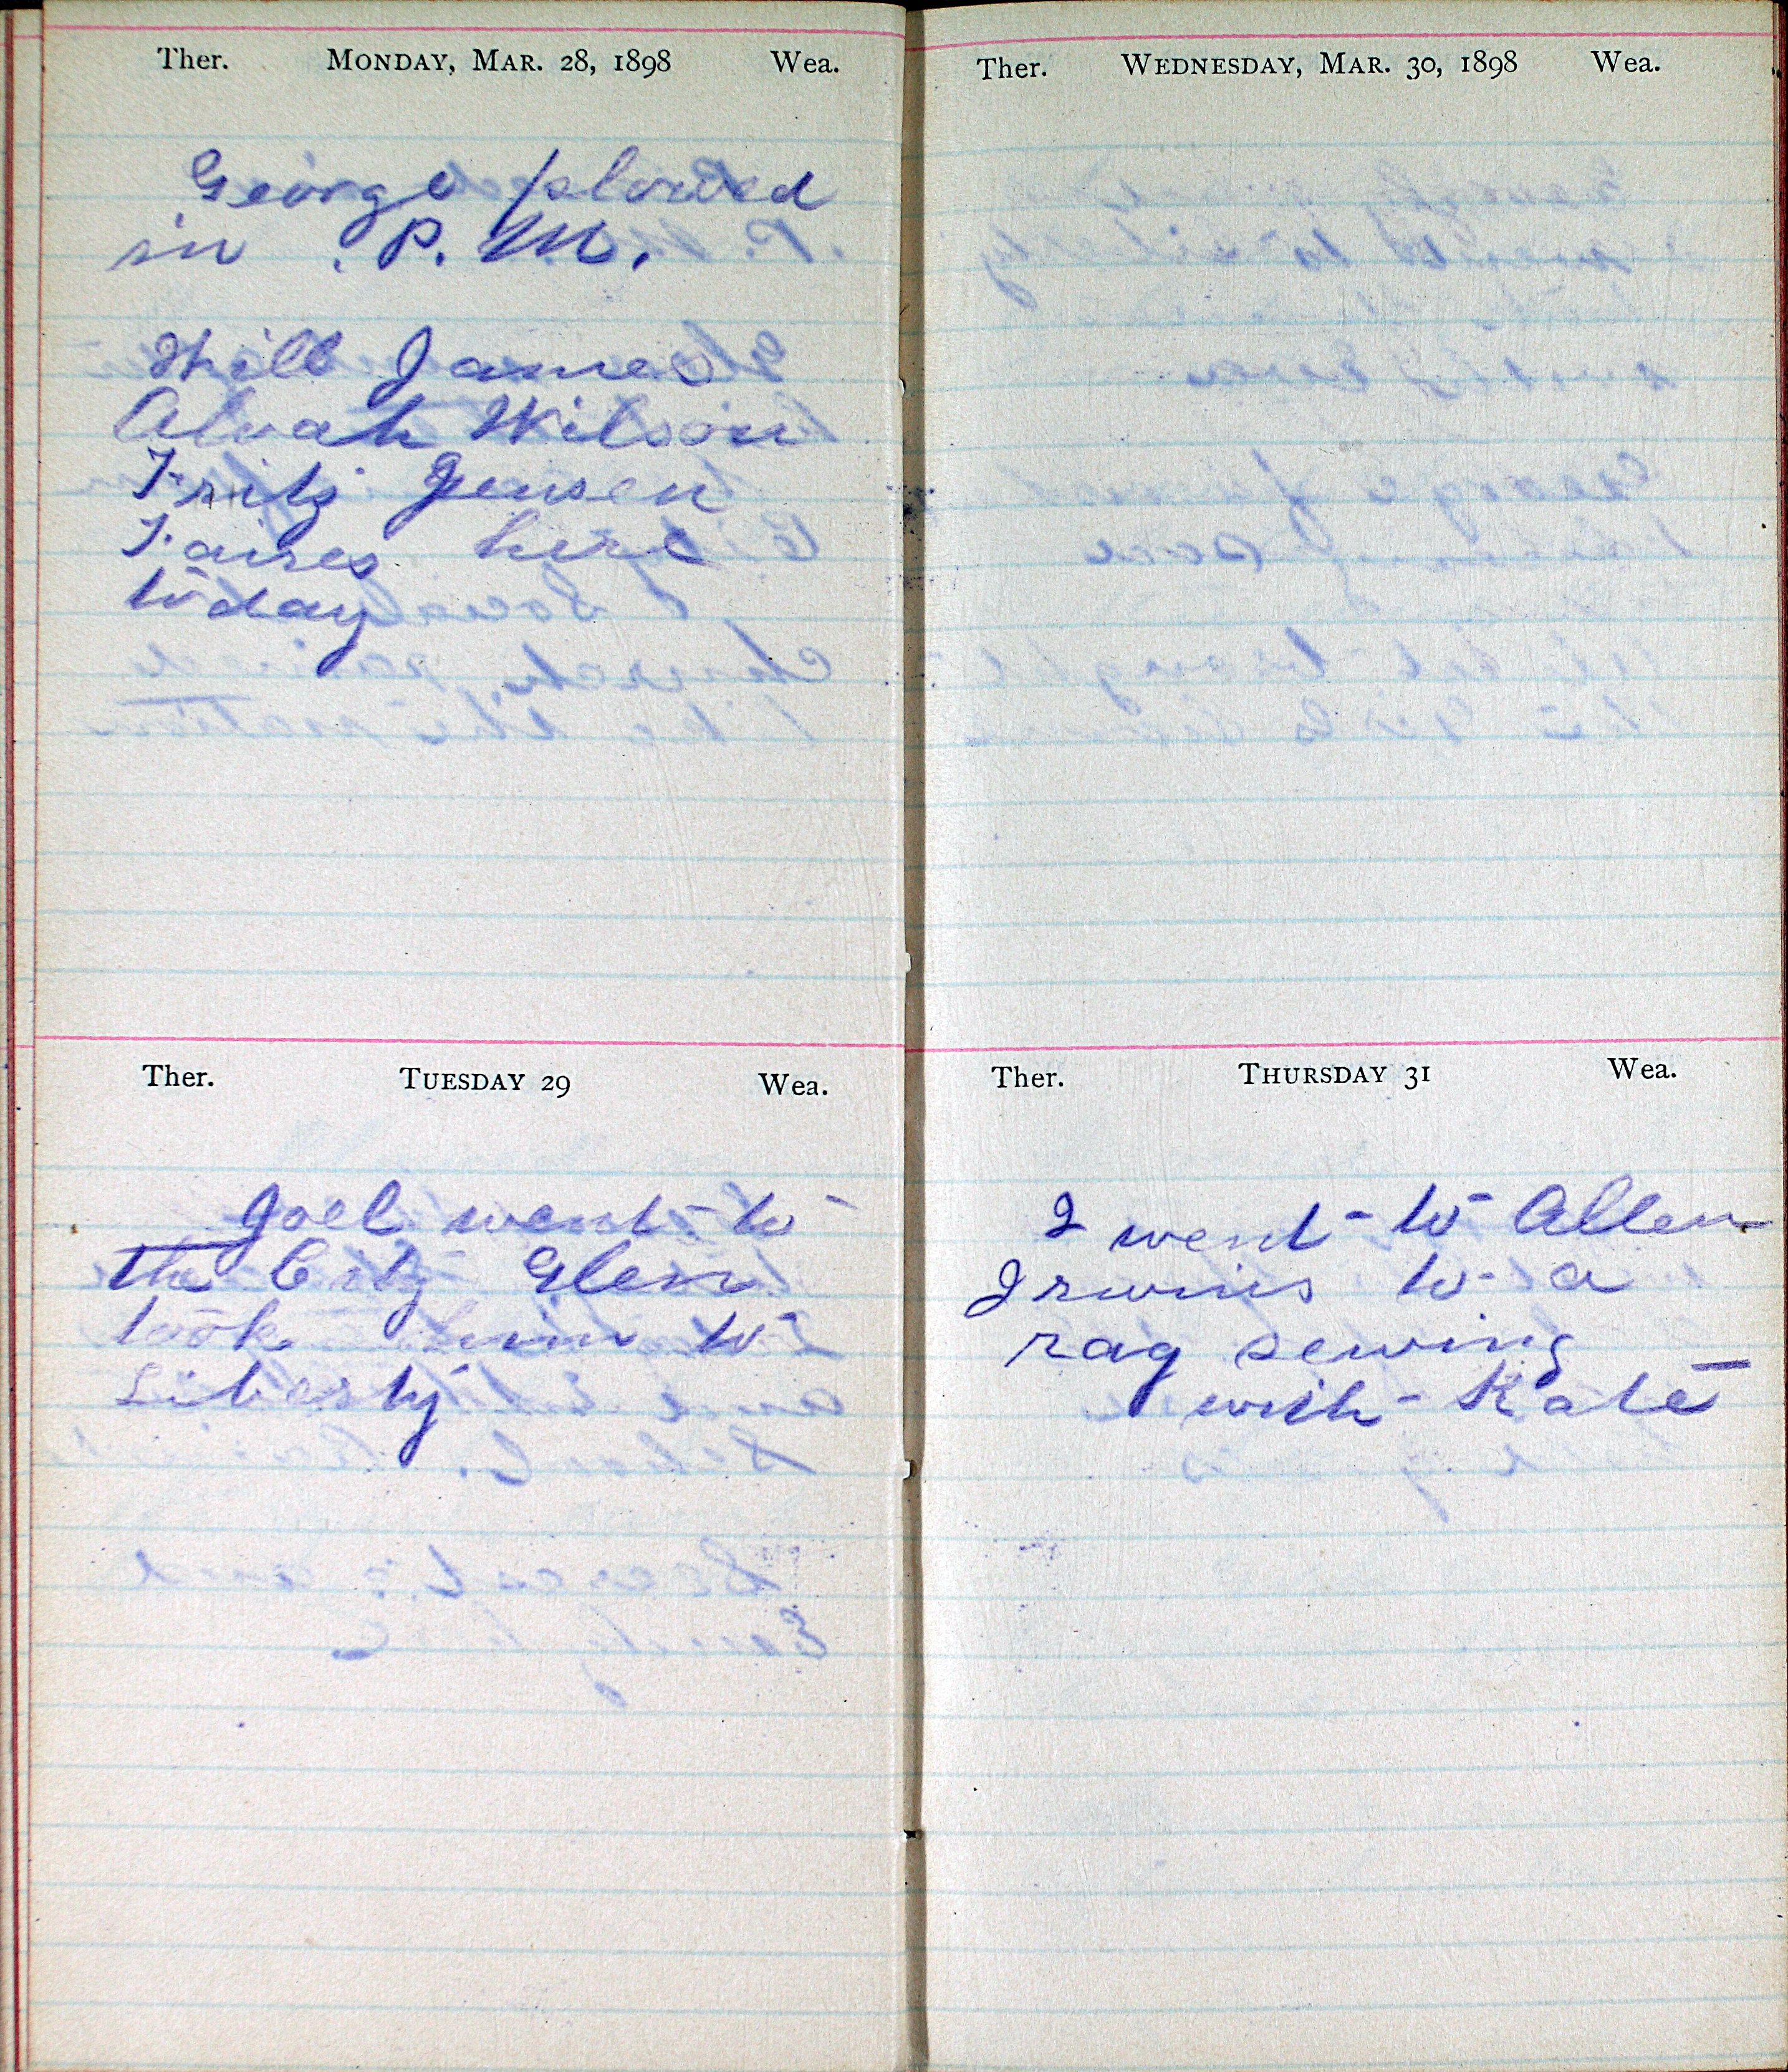 Ther. MONDAY, MAR. 28, 1898 Wea.
George plowed
in P. M.
Will James
Alvah Wilson
Fritz Jensen
Faires here
today
Ther. TUESDAY 29 Wea.
Joel went to
the City Glen
took him to
Liberty
Ther. WEDNESDAY, MAR. 30, 1898 Wea.
Ther. THURSDAY 31 Wea.
I went to Allen
Irwins to a
rag sewing
with Kate